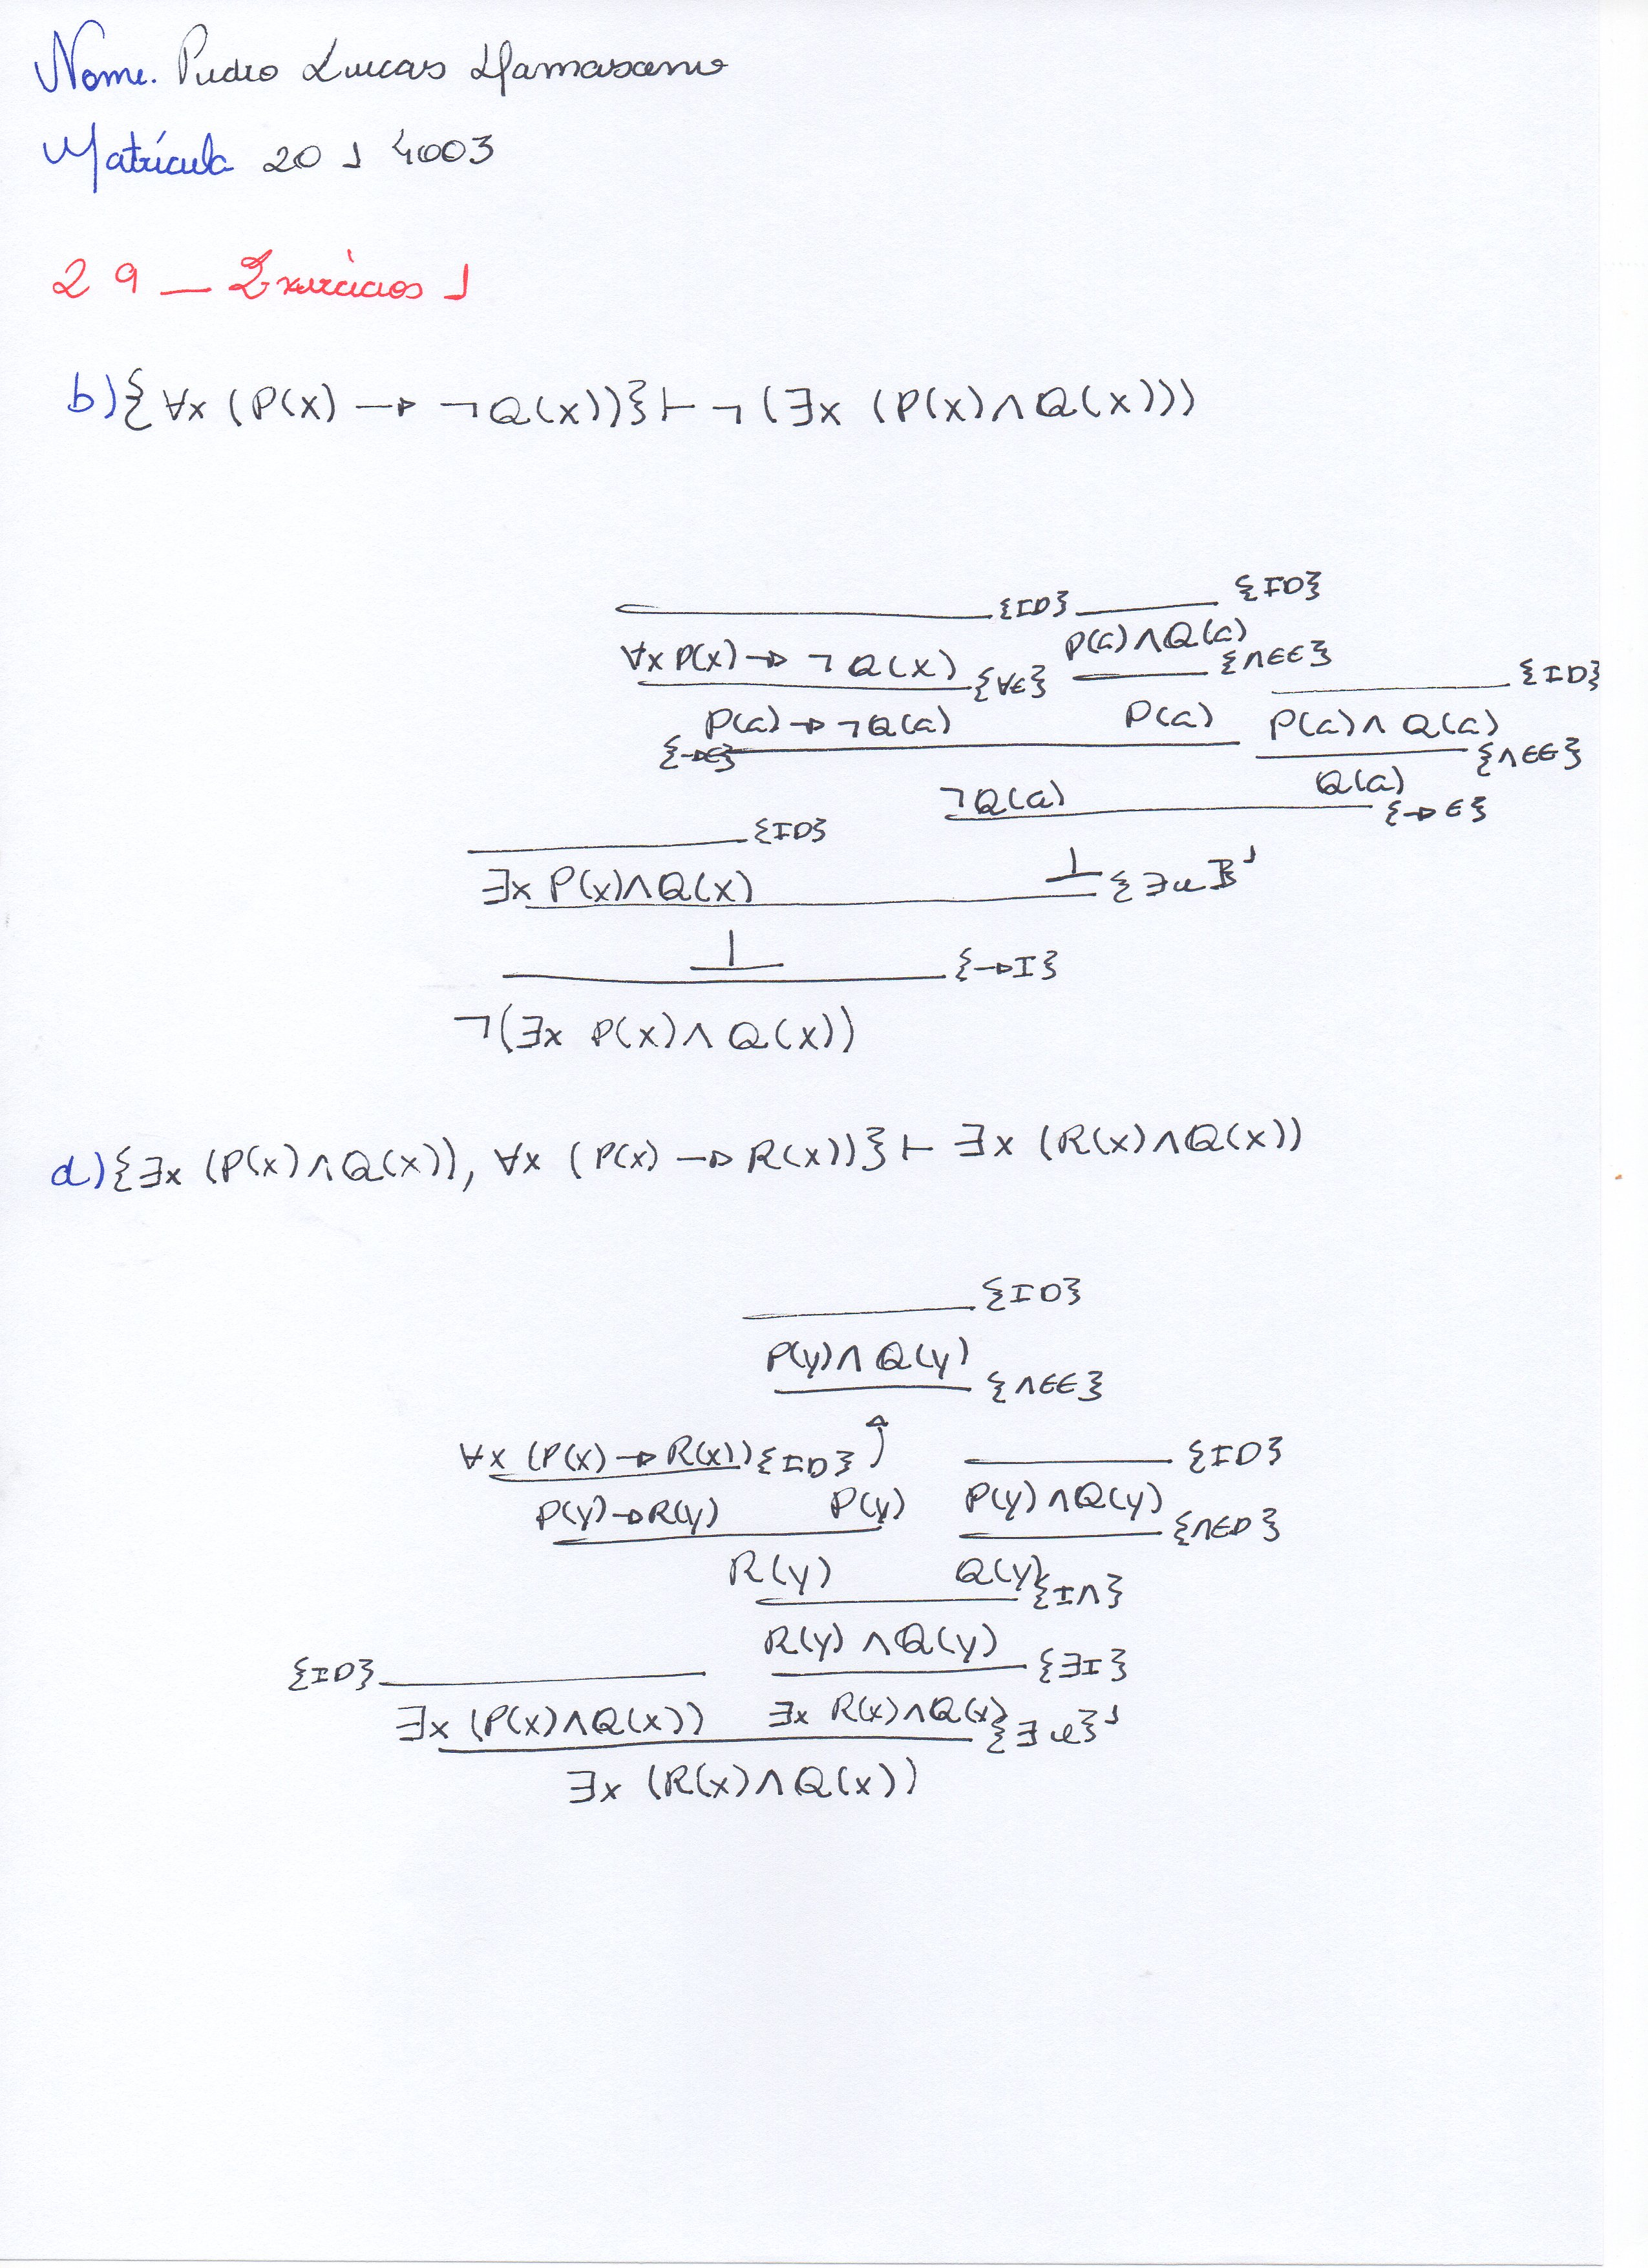 Nome. Pedro Lucas Damasceno
Matrícula 20 1 4003
29 — Exercícios 1
b) {∀x (P(x) → ¬Q(x))} ⊢ ¬(∃x (P(x) ∧ Q(x)))
{ID} {ID}
∀x P(x) → ¬Q(x) {∀E} P(a) ∧ Q(a) {∧EE} {ID}
P(a) → ¬Q(a) P(a) P(a) ∧ Q(a)
{→E} {∧EE}
¬Q(a) Q(a) {→E}
{ID}
∃x P(x) ∧ Q(x) ⊥
⊥ {→I}
¬(∃x P(x) ∧ Q(x))
d) {∃x (P(x) ∧ Q(x)), ∀x (P(x) → R(x))} ⊢ ∃x (R(x) ∧ Q(x))
{ID}
P(y) ∧ Q(y) {∧EE}
∀x (P(x) → R(x)) {ID} {ID}
P(y) → R(y) P(y) P(y) ∧ Q(y) {∧ED}
R(y) Q(y) {I∧}
R(y) ∧ Q(y) {∃I}
{ID}
∃x (P(x) ∧ Q(x)) ∃x R(x) ∧ Q(x)
∃x (R(x) ∧ Q(x))